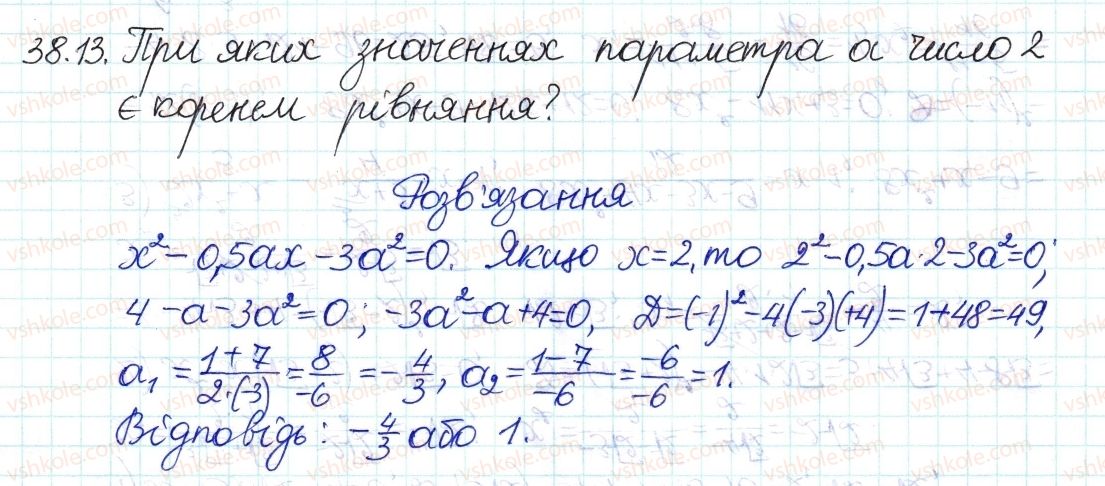 38.13. При яких значеннях параметра a число 2
є коренем рівняння?
Розв'язання
x² - 0,5ax - 3a² = 0. Якщо x = 2, то 2² - 0,5a·2 - 3a² = 0;
4 - a - 3a² = 0; -3a² - a + 4 = 0, D = (-1)² - 4(-3)(+4) = 1 + 48 = 49,
a₁ = (1+7)/(2·(-3)) = 8/-6 = -4/3, a₂ = (1-7)/-6 = -6/-6 = 1.
Відповідь: -4/3 або 1.